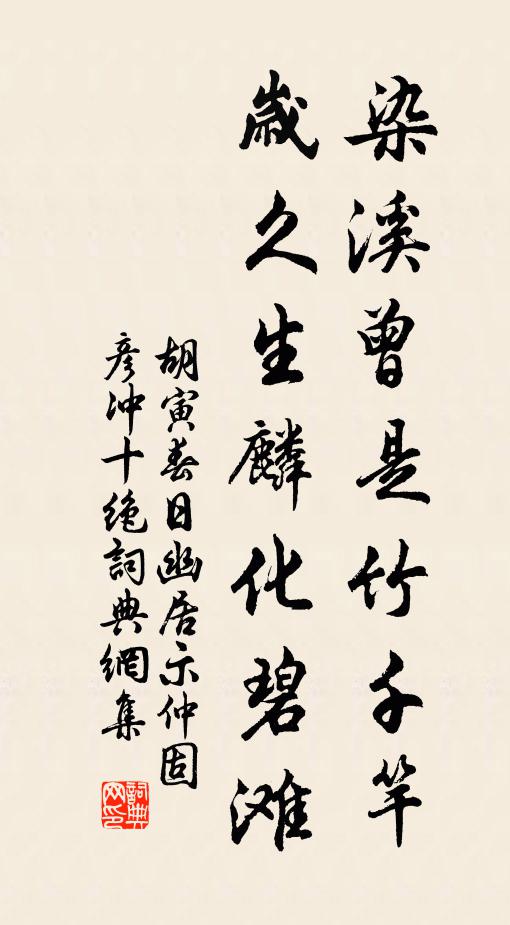 染溪曾是竹千竿
歲久生麟化碧滩
胡寅春日幽居示仲固
彦冲十絶詞典網集
詞典网印